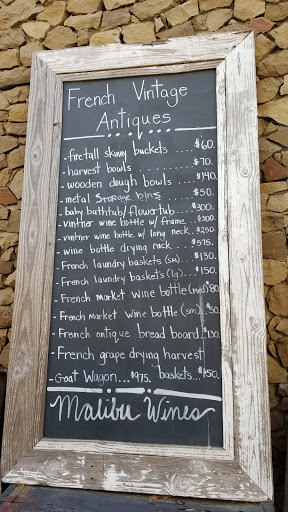 French Vintage
Antiques
- fire tall skinny buckets .... $60.
- harvest bowls .......... $70.
- wooden dough bowls .... $140.
- metal storage bins ..... $50.
- baby bathtub/flower tub .... $300.
- vintner wine bottle w/ frame ... $300.
- vintner wine bottle w/ long neck .. $250.
- wine bottle drying rack ... $575.
- French laundry baskets (sm) ... $130.
- French laundry baskets (lg) ... $150.
- French market wine bottle (med) $80.
- French market wine bottle (sm) .. $50.
- French antique bread board .. $130.
- French grape drying harvest
- Goat Wagon... $975. baskets... $150.
Malibu Wines